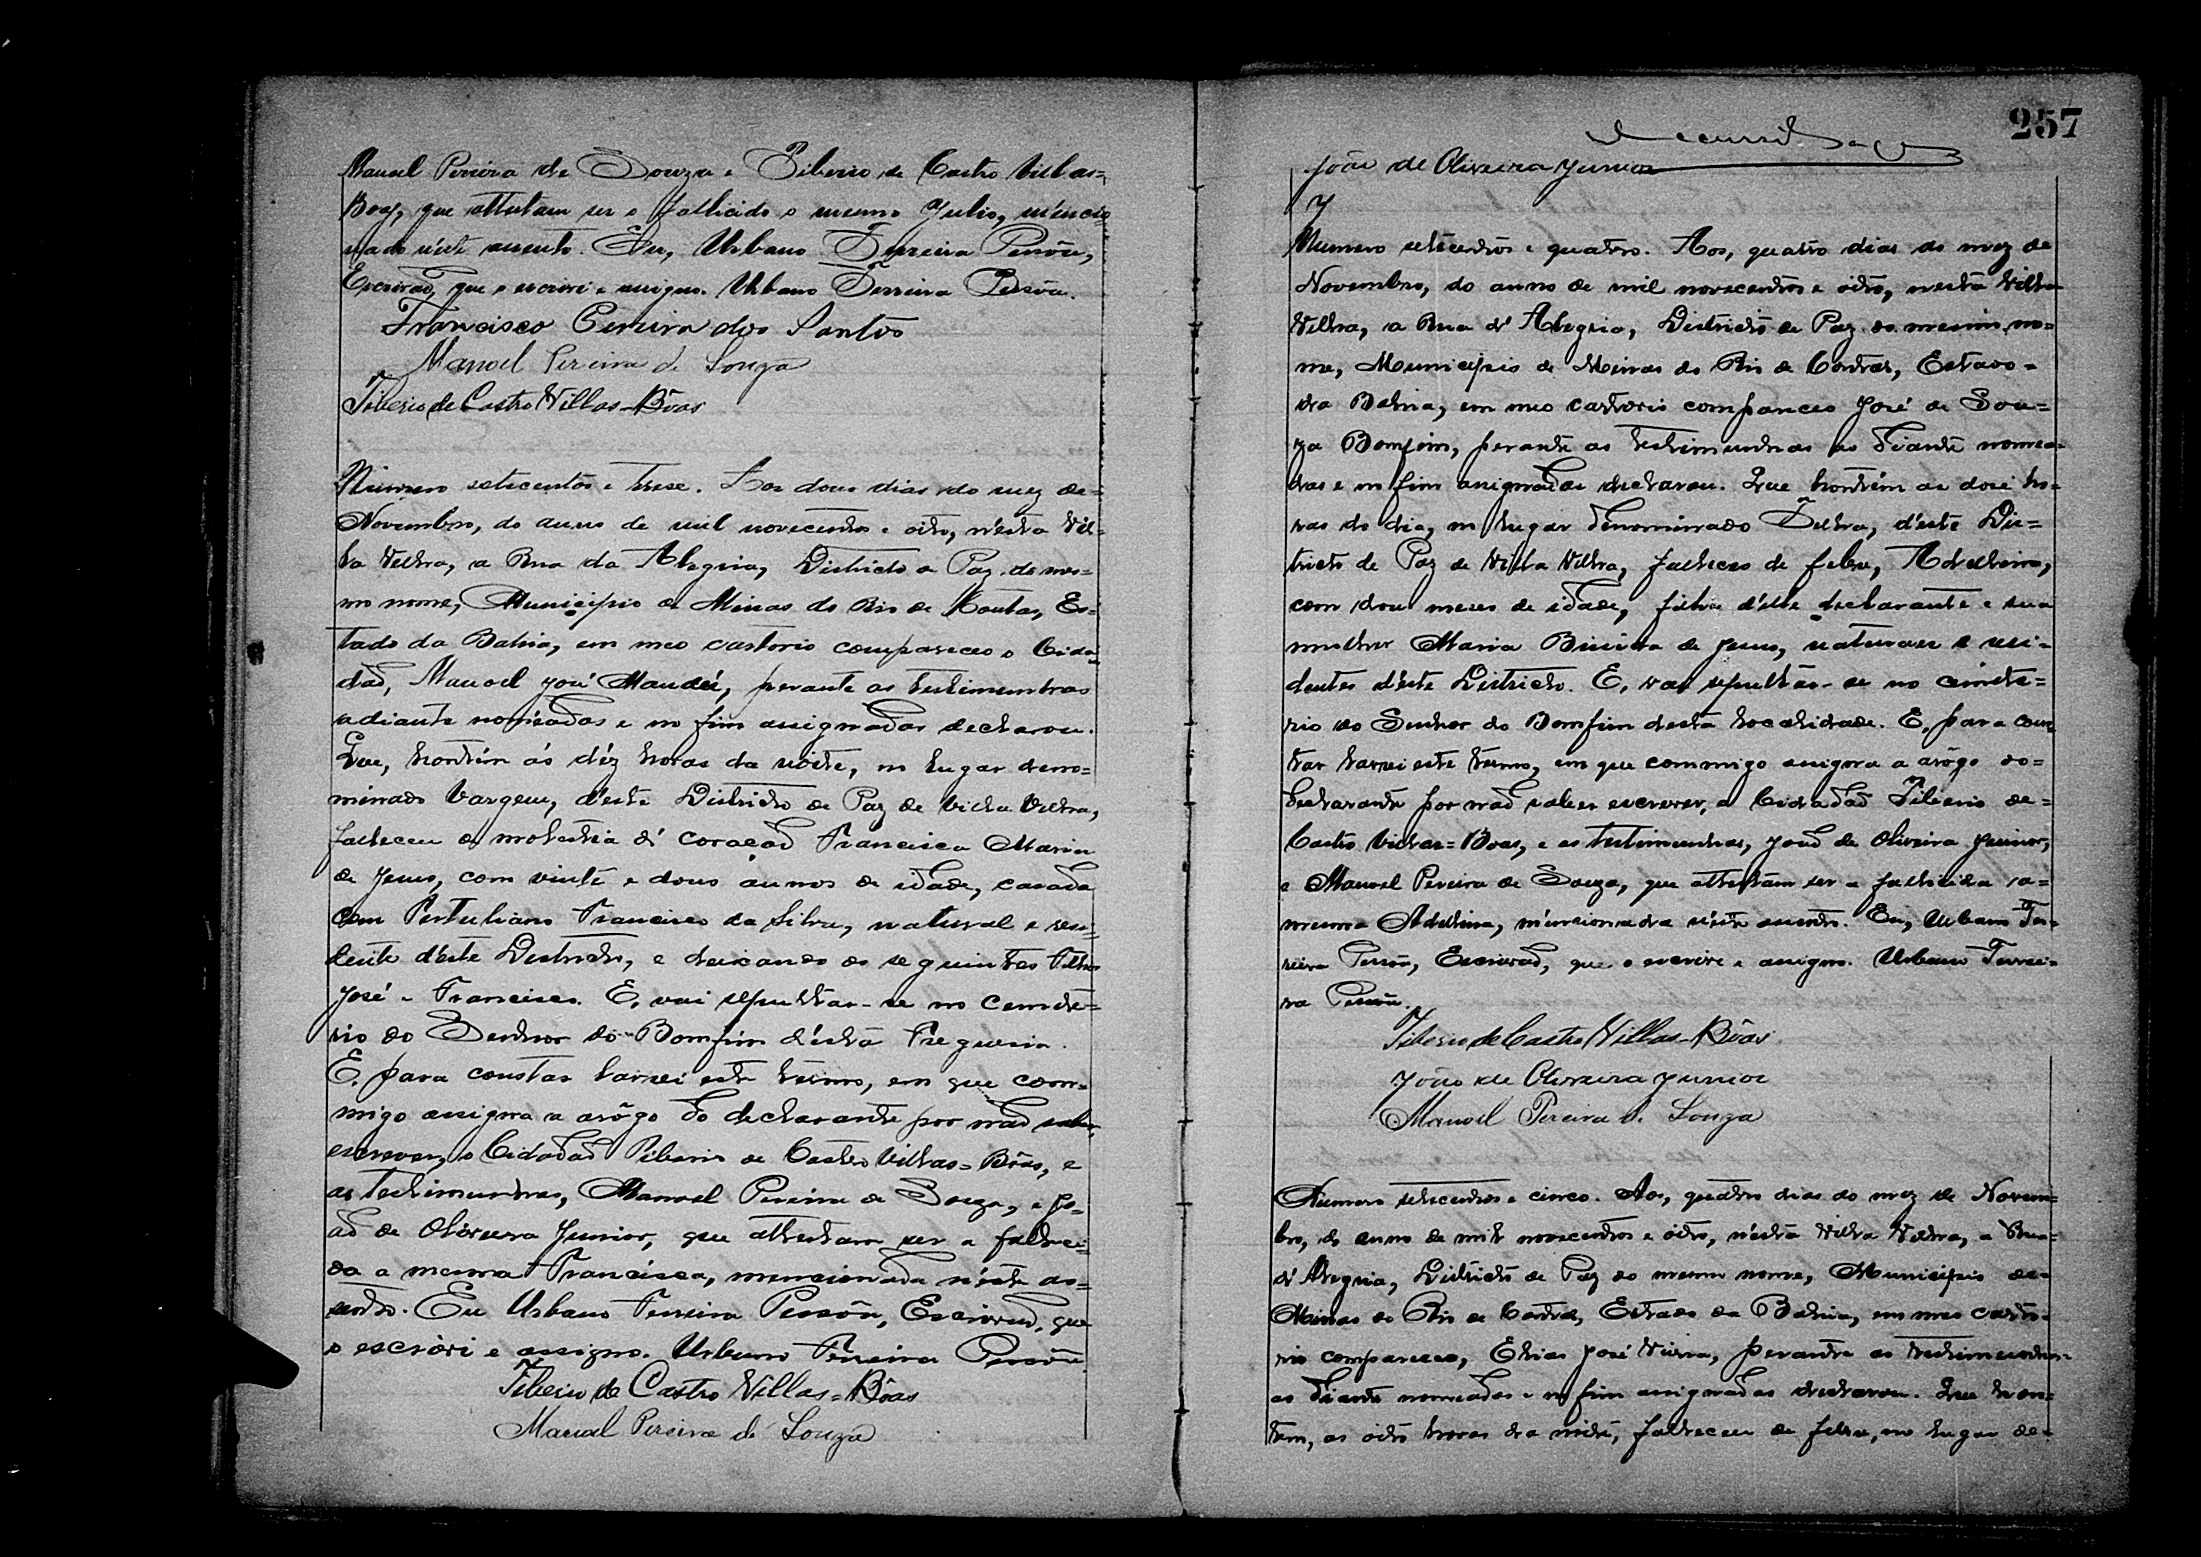 Manoel Pereira de Souza e Tiberio de Castro Villas=
Boas, que attestam ser o fallicido o mesmo Julio, mencio
nado n'este assento. Eu, Urbano Ferreira Pessôa,
Escrivão, que o escrivi e assigno. Urbano Ferreira Pessôa.
Francisco Pereira dos Santos
Manoel Pereira de Souza
Tiberio de Castro Villas-Bôas
Numero setecentos e trese. Aos dous dias do mez de=
Novembro, do anno de mil novecentos e oito, n'esta Vil=
la Velha, a Rua da Alegria, Districto de Paz do mes=
mo nome, Municipio de Minas do Rio de Contas, Es=
tado da Bahia, em meo cartorio compareceo o Cida
dão, Manoel José perante as testimunhas
adiante nomeadas e no fim assignadas declarou.
Que, hontém ás déz horas da noite, no lugar deno=
minado Vargem, d'este Districto de Paz de Villa Velha,
falleceu de molestia d' coração Francisca Maria
de Jesus, com vinte e dous annos de idade, casada
com Pertuliano Francisco da Silva, natural e resi=
dente d'este Districto, e deixando os seguintes filhos
José e Francisco. E, vai sepultar-se no cemite=
rio do Senhor do Bomfim d'esta Freguesia.
E, para constar lavrei este têrmo, em que com=
migo assigna a arôgo do declarante por não saber
escrever, o Cidadão Tiberio de Castro Villas=Bôas, e
as testimunhas, Manoel Pereira de Souza, e Jo=
ão de Oliveira Junior, que attestam ser a falleci=
da a mesma Francisca, mencionada n'este as=
sento. Eu Urbano Ferreira Pessôa, Escrivão, que
o escrivi e assigno. Urbano Ferreira Pessôa
Tiberio de Castro Villas=Bôas
Manoel Pereira de Souza
257
João de Oliveira Junior
Numero setecentos e quatro. Aos, quatro dias do mez de
Novembro, do anno de mil novecentos e oito, nesta Villa
Velha, a Rua d' Alegria, Districto de Paz do mesmo no=
me, Municipio de Minas do Rio de Contas, Estado=
da Bahia, em meo cartorio compareceo José de Sou=
za Bomfim, perante as testimunhas as diante nomea=
das e no fim assignadas declarou. Que hontém as doze ho=
ras do dia, no lugar denominado d'este Dis=
tricto de Paz de Villa Velha, falleceo de febre, Adelina,
com dous mezes de idade, filha d'elle declarante e sua
mulher Maria de Jesus, naturaes e resi=
dentes d'este Districto. E, vai sepultar-se no cimite=
rio do Senhor do Bomfim desta localidade. E, para cons
tar lavrei este termo, em que commigo assigna a arôgo do=
declarante por não saber escrever, o Cidadão Tiberio de=
Castro Villas=Boas, e as testimunhas, João de Oliveira Junior,
e Manoel Pereira de Souza, que attestam ser a fallicida a=
mesma Adelina, mencionada n'este assento. Eu, Urbano Fer=
reira Pessôa, Escrivão, que o escrivi e assigno. Urbano Ferrei=
ra Pessôa.
Tiberio de Castro Villas-Bôas.
João de Oliveira Junior
Manoel Pereira d. Souza
Numero setecentos e cinco. Aos, quatro dias do mez de Novem=
bro, do anno de mil novecentos e oito, n'esta Villa Velha, a Rua=
d' Alegria, Districto de Paz do mesmo nome, Municipio de=
Minas do Rio de Contas, Estado da Bahia, em meo carto=
rio compareceo, Elias José Vieira, perante as testimunhas=
as diante nomeadas e no fim assignadas declarou. Que hon=
tem, as oito horas da noite, falleceu de febre, no lugar de=